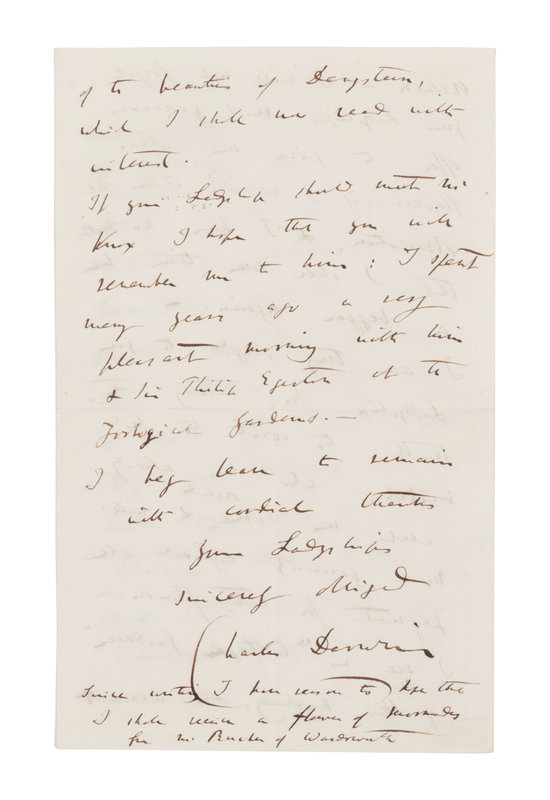 of the beauties of Dangstein,
which I shall now read with
interest.
If your Ladyship should meet Mr
Knox I hope that you will
remember me to him: I spent
many years ago a very
pleasant morning with him
& Sir Philip Egerton at the
Zoological Gardens.—
I beg leave to remain
with cordial thanks
Your Ladyships
sincerely obliged
Charles Darwin
Since writing I have reason to hope that
I shall receive a flower of Mormodes
from Mr. Rucker of Wandsworth